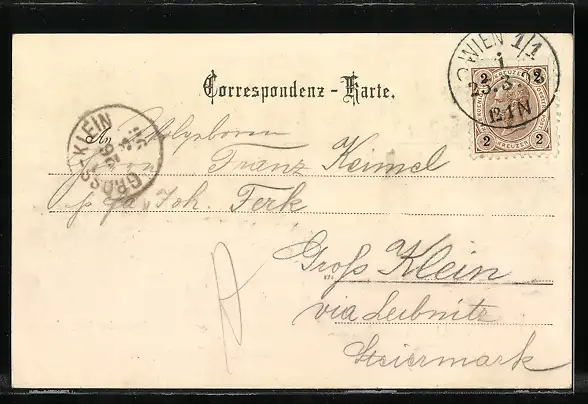 Correspondenz - Karte.
WIEN 1/1
2 KREUZER 2
12.1N
2 KREUZER 2
GROSS-KLEIN
An Wolgeboren
Herrn Franz Keimel
p. Joh. Ferk
Groß Klein
via Leibnitz
Steiermark